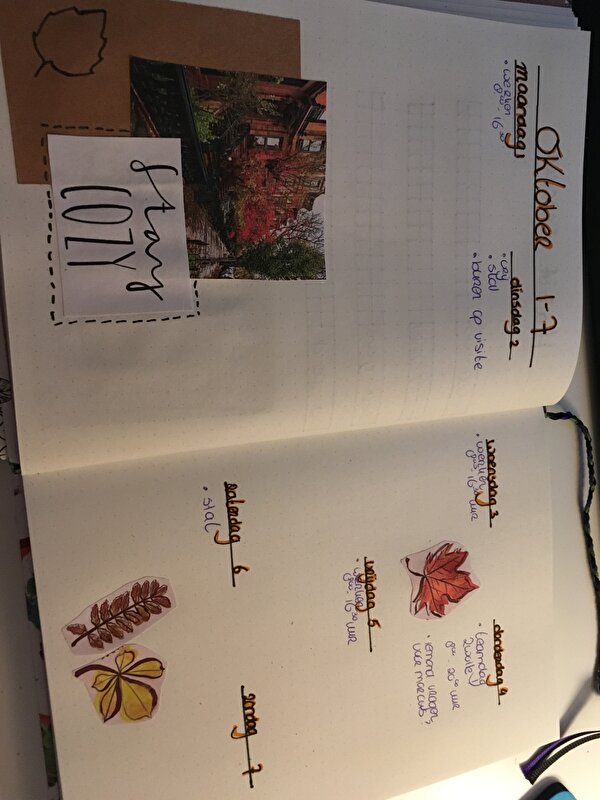 Oktober 1-7
maandag 1
• werken
9⁰⁰ - 16³⁰
dinsdag 2
• vrij
• stal
• buren op visite
Stay
COZY
woensdag 3
• werken
9⁰⁰ - 16³⁰ uur
donderdag 4
• teamdag
Zwolle
9⁰⁰ - 20⁰⁰ uur
vrijdag 5
• werken
9⁰⁰ - 16³⁰ uur
zaterdag 6
• stal
zondag 7